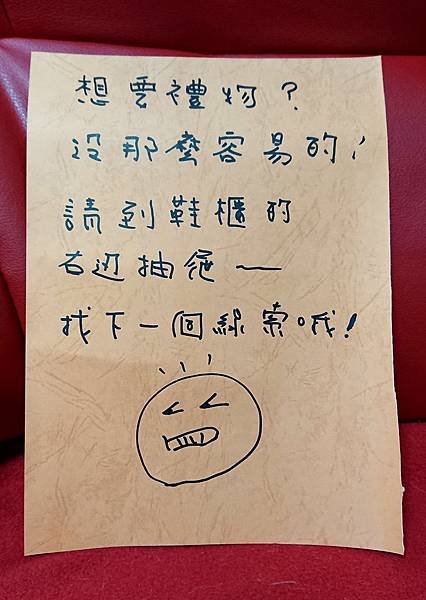 想要禮物？
沒那麼容易的！
請到鞋櫃的
右边抽屜——
找下一個線索哦！